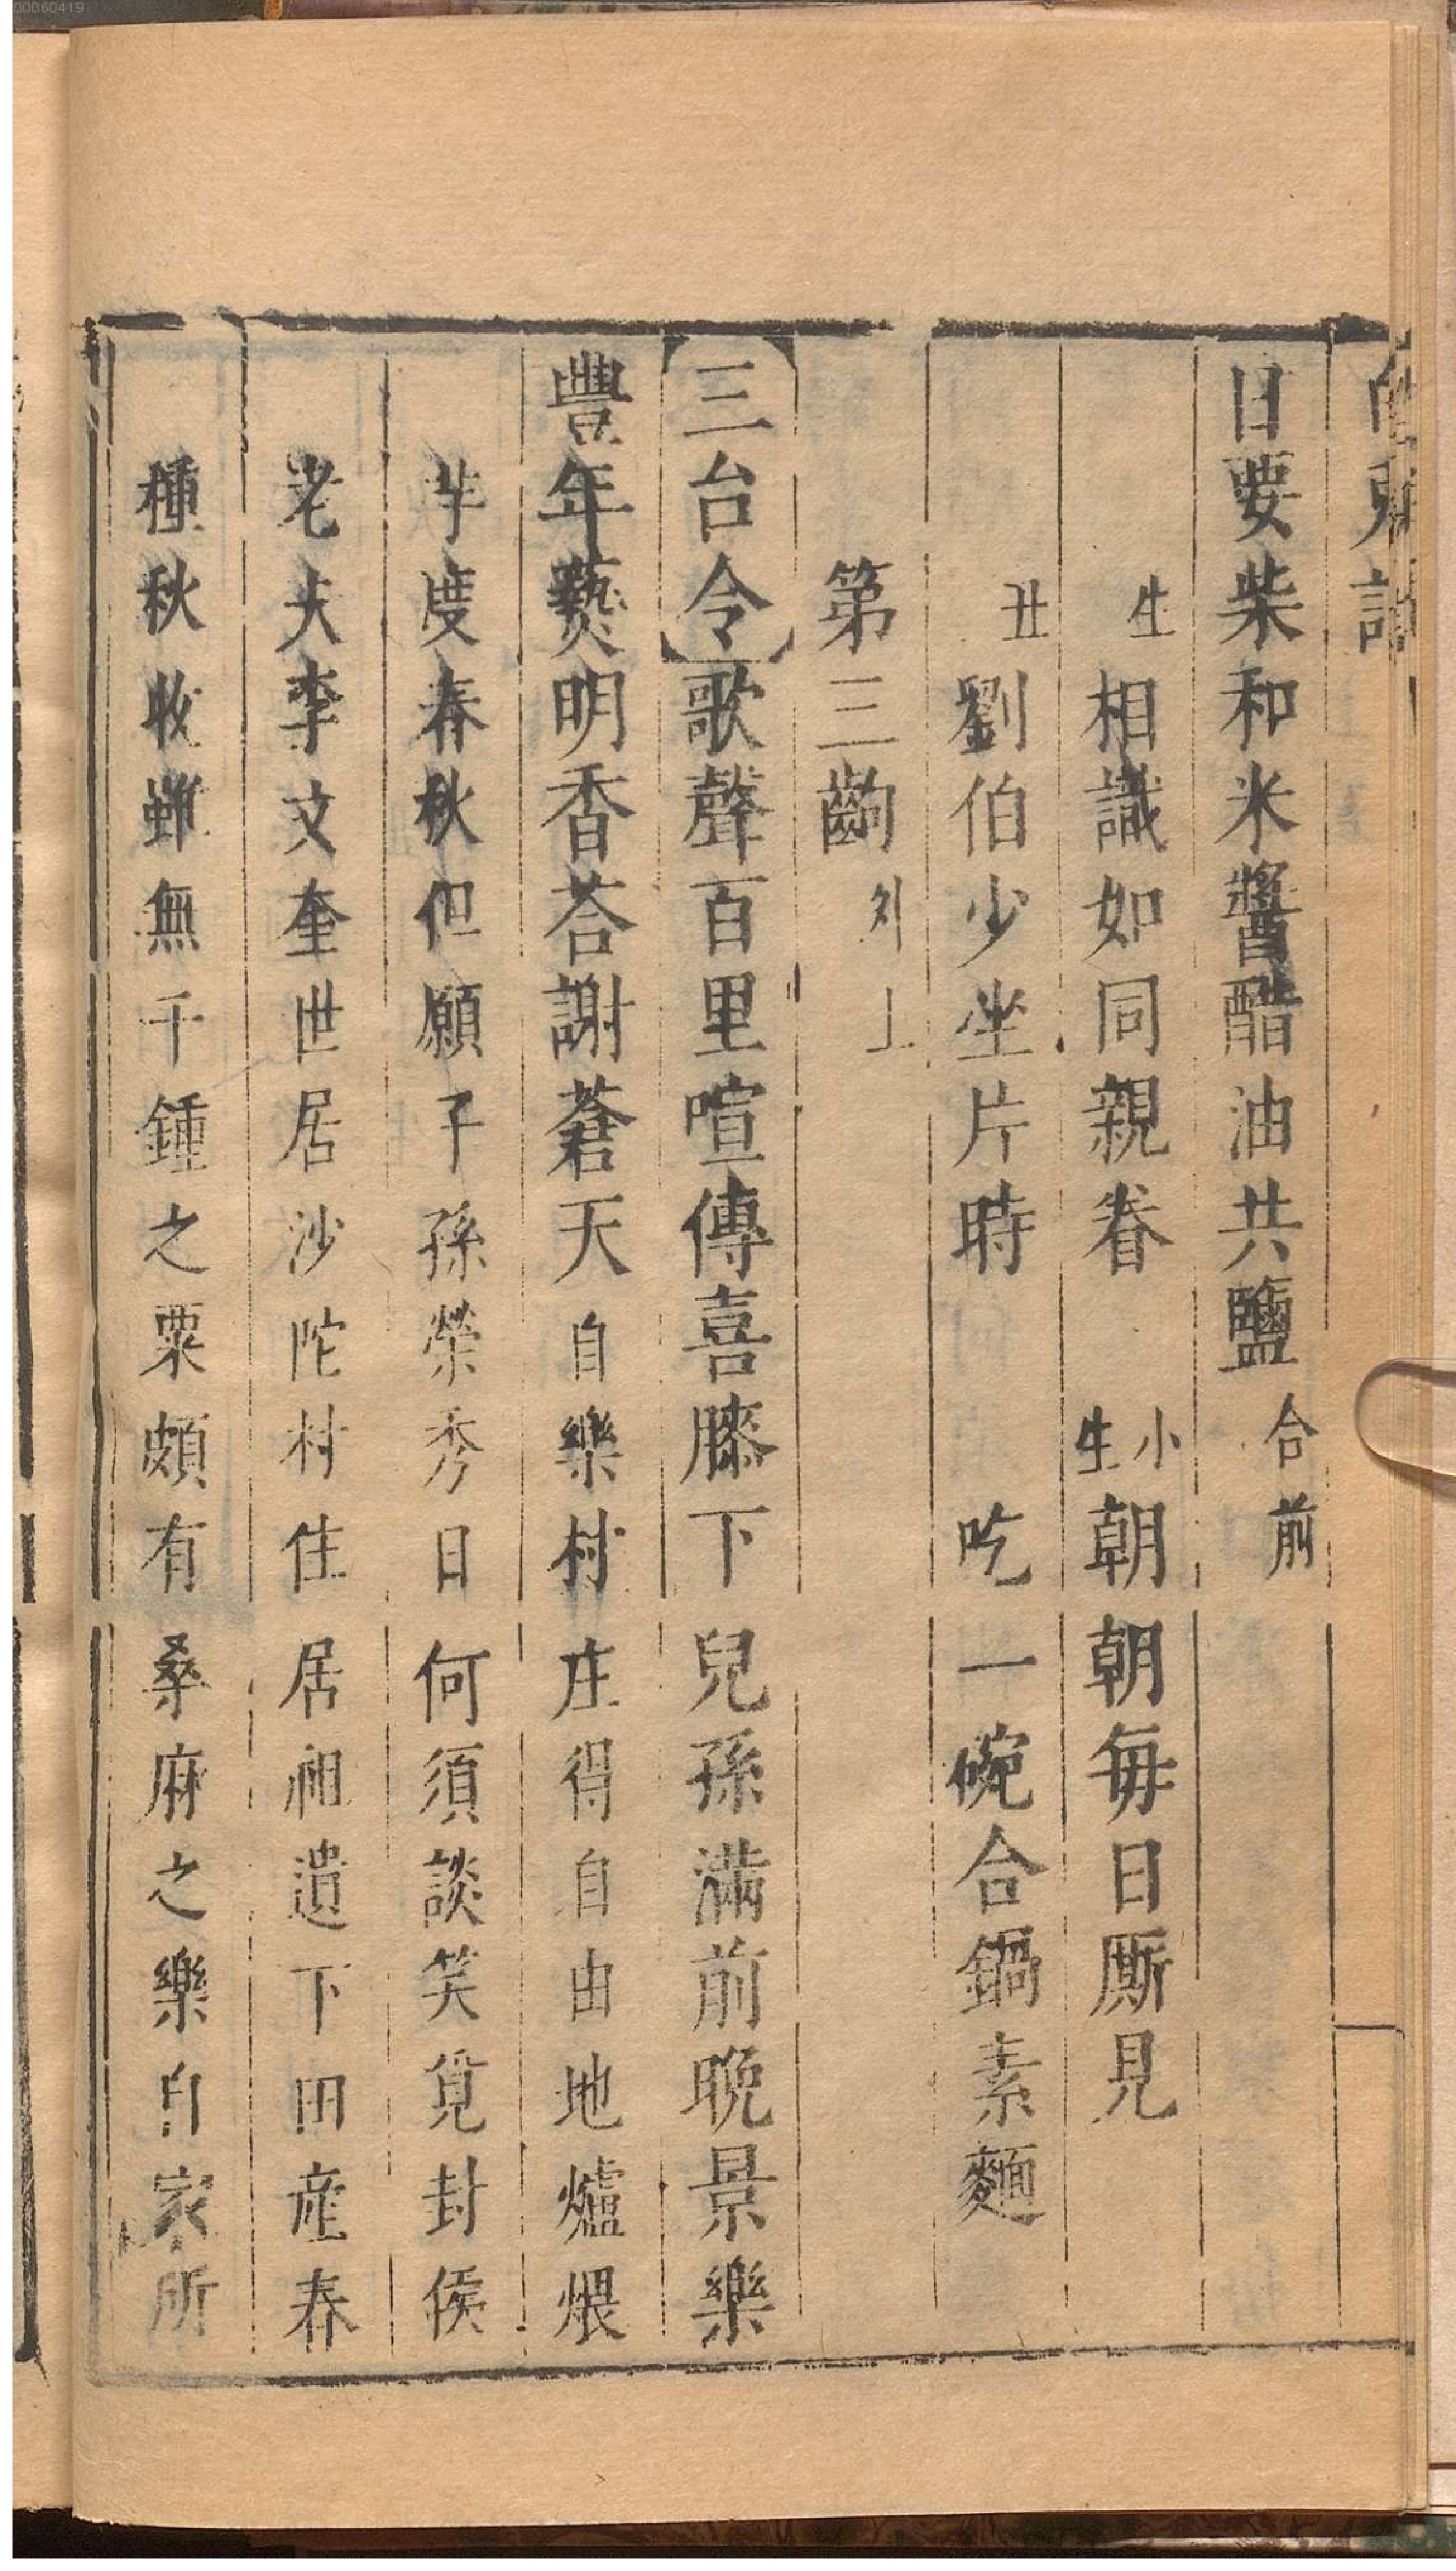 00060419
日要柴和米醬醋油共鹽合前
生相識如同親眷小生朝朝每日厮見
丑劉伯少坐片時吃一碗合鍋素麵
第三齣外上
三台令歌聲百里喧傳喜膝下兒孫滿前晩景樂
豐年爇明香荅謝蒼天自樂村庄得自由地爐煨
芋度春秋但願子孫榮秀日何須談笑覓封侯
老夫李文奎世居沙陀村住居祖遺下田產春
種秋收雖無千鍾之粟頗有桑麻之樂自家所